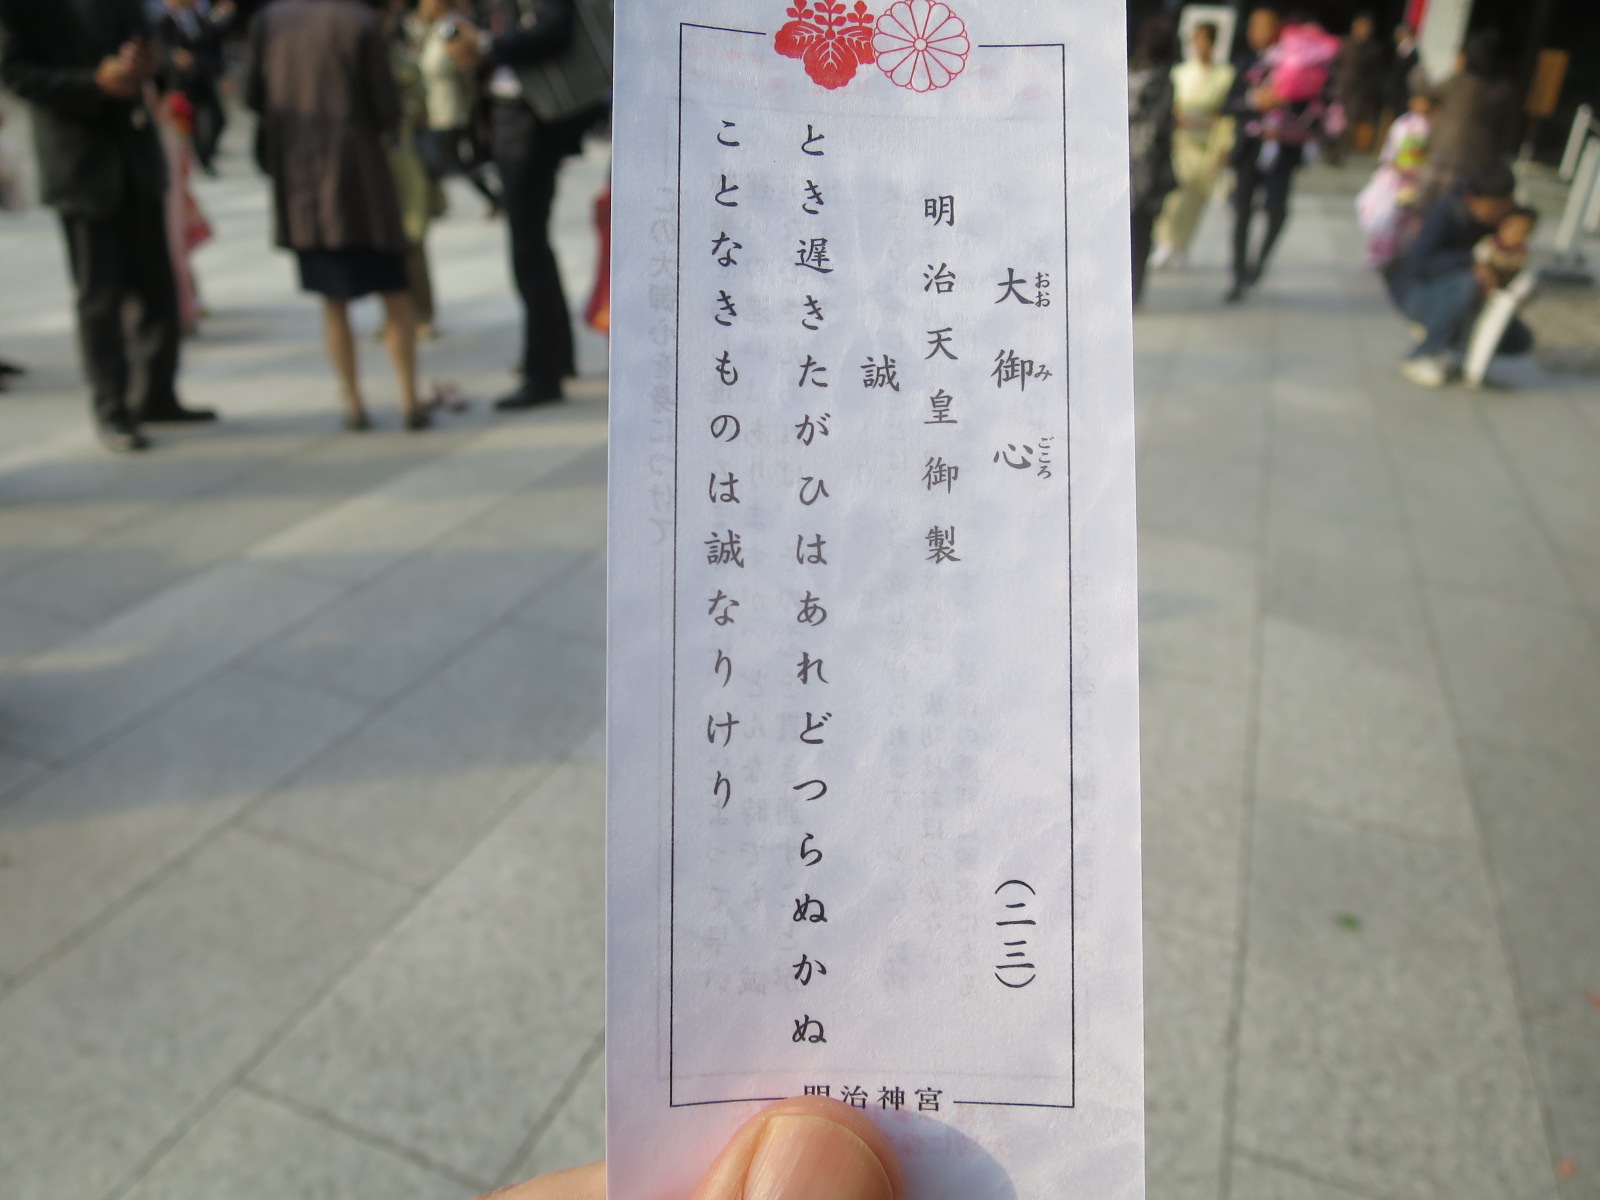 大御心 (二三)
おおみごころ
明治天皇御製
誠
とき遅きたがひはあれどつらぬかぬ
ことなきものは誠なりけり
明治神宮